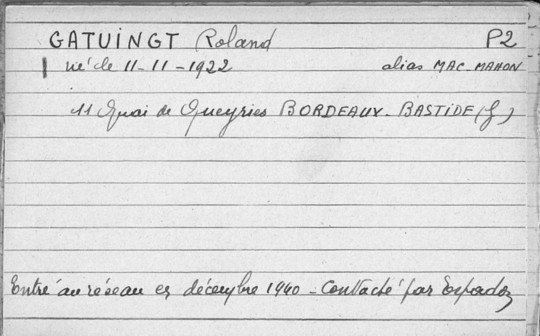 GATUINGT Roland P2
né le 11-11-1922 alias MAC-MAHON
11 Quai de Queyries BORDEAUX-BASTIDE (G)
Entré au réseau en décembre 1940 - Contacté par